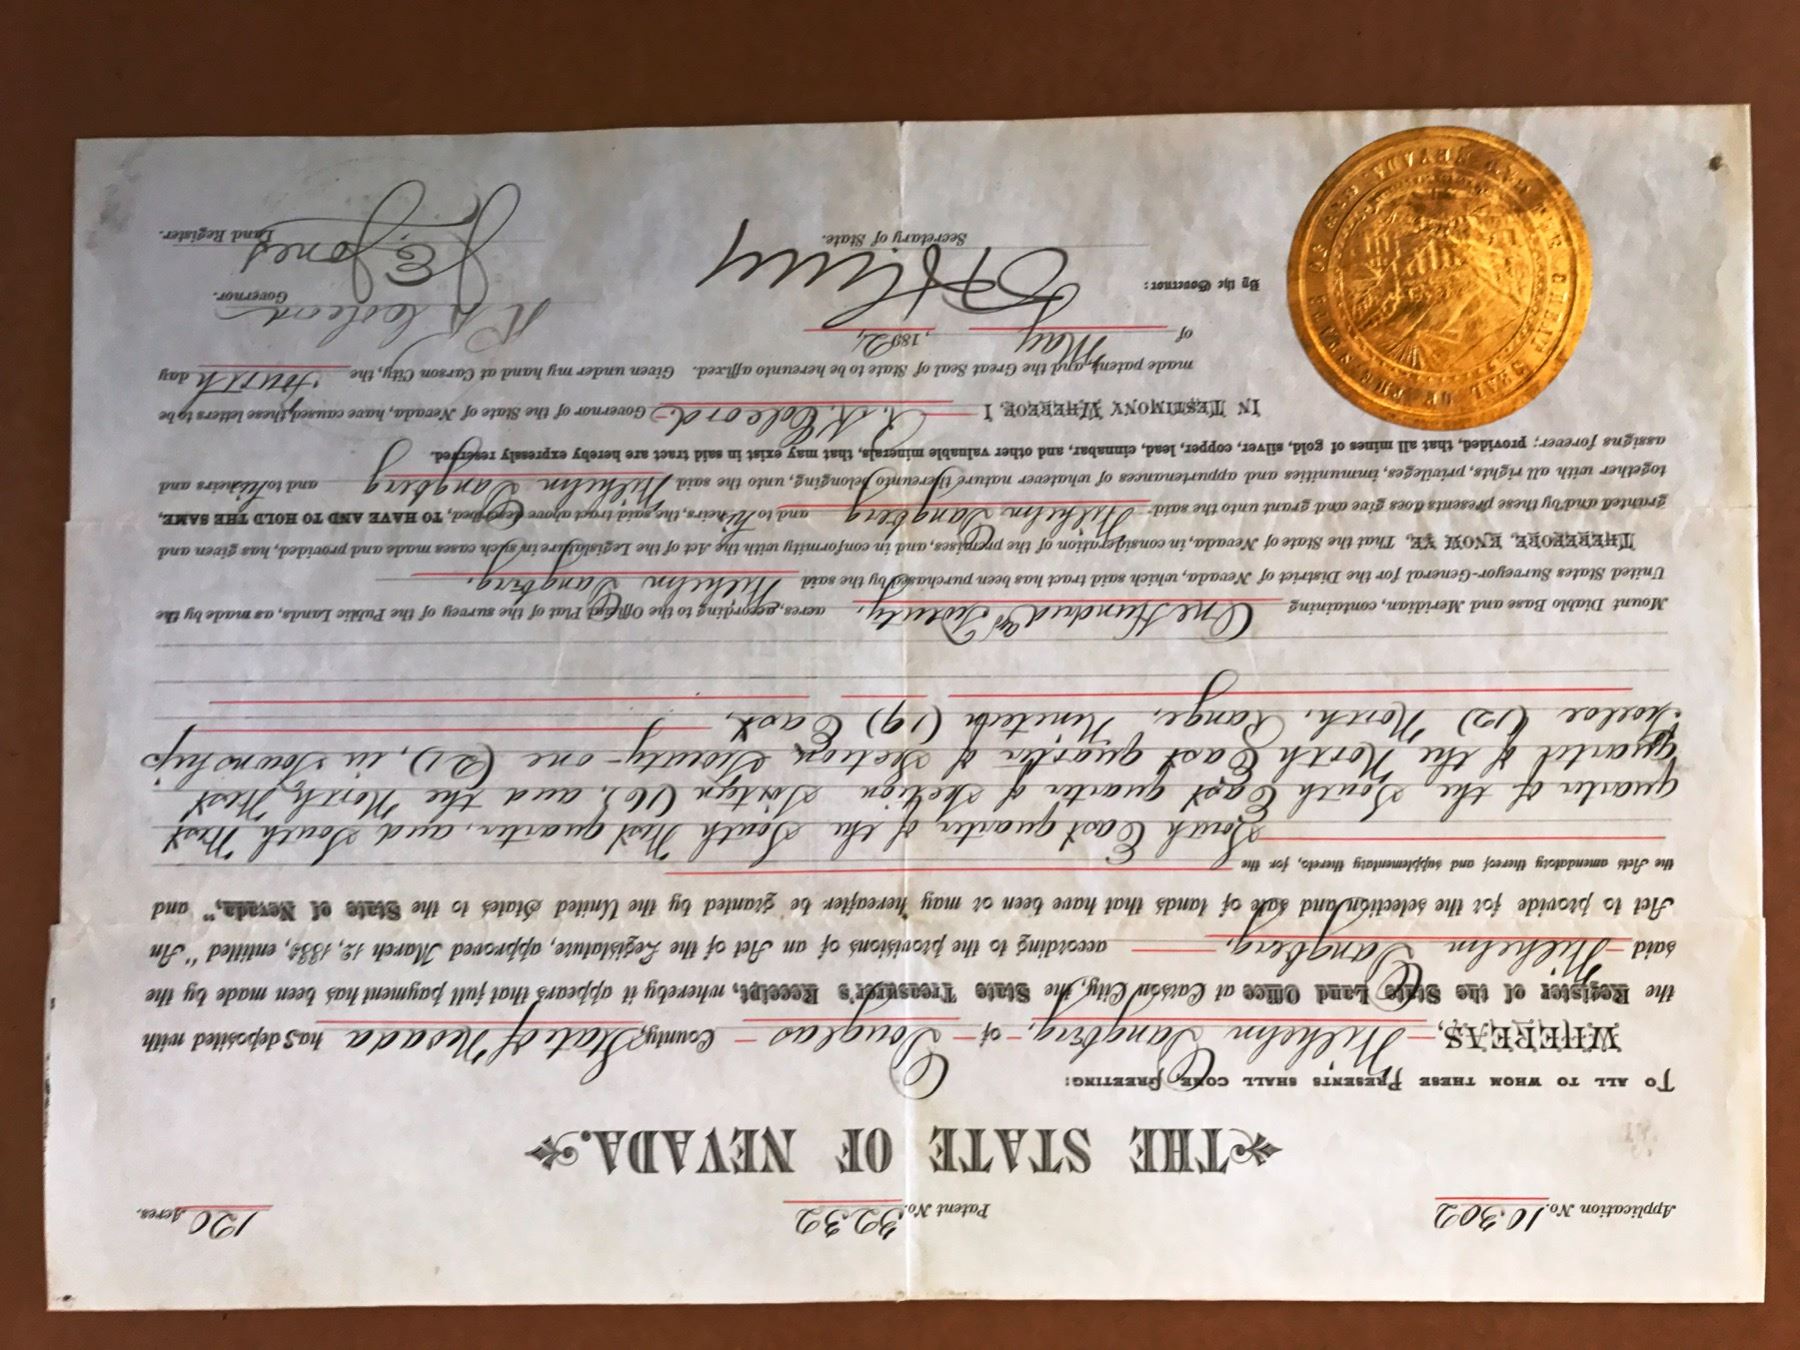 Application No. 10302 Patent No. 3232 120 Acres.
THE STATE OF NEVADA.
TO ALL TO WHOM THESE PRESENTS SHALL COME, GREETING:
WHEREAS, Wilhelm Dangberg, of Douglas County, State of Nevada has deposited with
the Register of the State Land Office at Carson City, the State Treasurer's Receipt, whereby it appears that full payment has been made by the
said Wilhelm Dangberg, according to the provisions of an Act of the Legislature, approved March 12, 1885, entitled "An
Act to provide for the selection and sale of lands that have been or may hereafter be granted by the United States to the State of Nevada," and
the Acts amendatory thereof and supplementary thereto, for the
South East quarter of the South West quarter, and South West
quarter of the South East quarter of Section Sixteen (16), and the North West
quarter of the North East quarter of Section Twenty-one (21), in Township
Twelve (12) North, Range, Nineteen (19) East,
Mount Diablo Base and Meridian, containing One Hundred and Twenty, acres, according to the Official Plat of the survey of the Public Lands, as made by the
United States Surveyor-General for the District of Nevada, which said tract has been purchased by the said Wilhelm Dangberg.
THEREFORE, KNOW YE, That the State of Nevada, in consideration of the premises, and in conformity with the Act of the Legislature in such cases made and provided, has given and
granted and by these presents does give and grant unto the said Wilhelm Dangberg and to his heirs, the said tract above described, TO HAVE AND TO HOLD THE SAME,
together with all rights, privileges, immunities and appurtenances of whatever nature thereunto belonging, unto the said Wilhelm Dangberg and to his heirs and
assigns forever; provided, that all mines of gold, silver, copper, lead, cinnabar, and other valuable minerals, that may exist in said tract are hereby expressly reserved.
IN TESTIMONY WHEREOF, I R. K. Colcord Governor of the State of Nevada, have caused these letters to be
made patent, and the Great Seal of State to be hereunto affixed. Given under my hand at Carson City, the fourth day
of May, 1892,
R K Colcord
Governor.
By the Governor:
Secretary of State.
J. E. Jones
Land Register.
THE GREAT SEAL OF THE STATE OF NEVADA